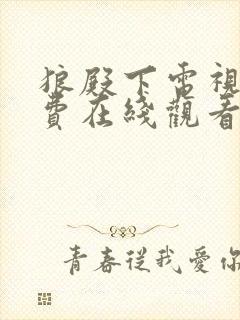 狼殿下電視
費在綫觀看
青春從我愛你